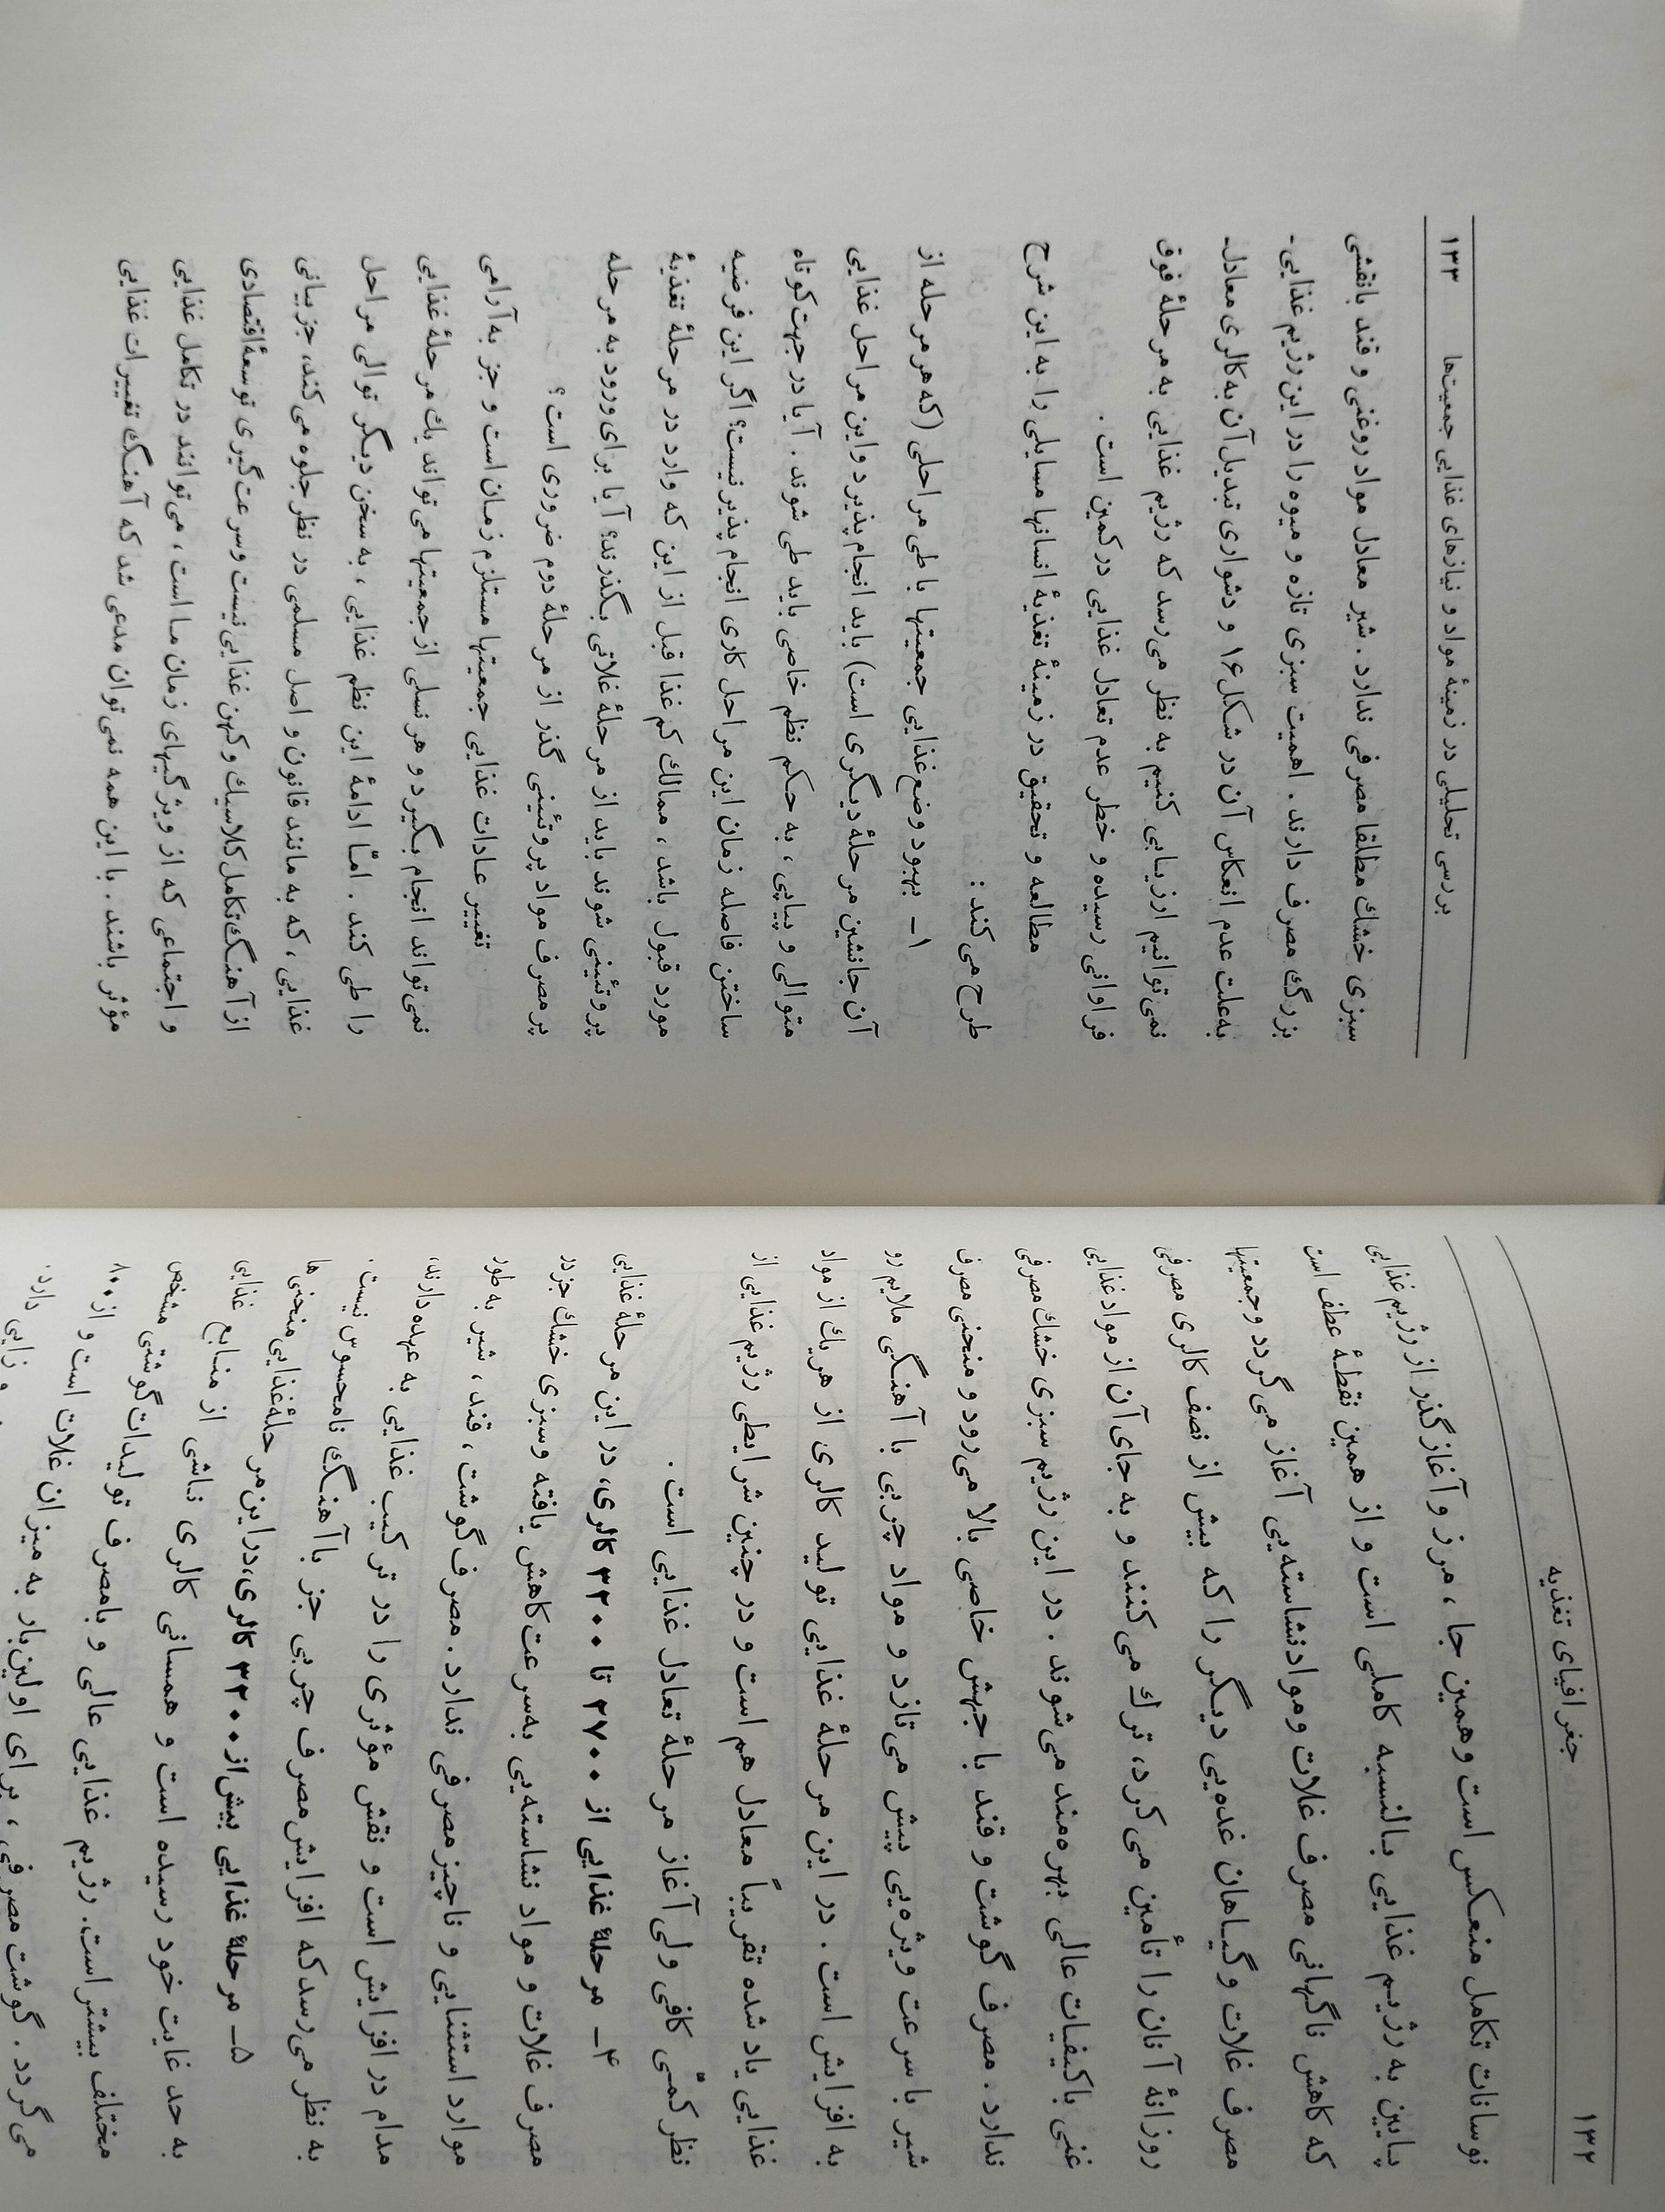 ۱۳۲
جغرافیای تغذیه
نوسانات تکامل منعکس است و همین جا، مرز و آغاز گذر از رژیم غذایی
پایین به رژیم غذایی بالنسبه کاملی است و از همین نقطهٔ عطف است
که کاهش ناگهانی مصرف غلات و مواد نشاسته‌یی آغاز می‌گردد و جمعیتها
مصرف غلات و گیاهان غده‌یی دیگر را که بیش از نصف کالری مصرفی
روزانهٔ آنان را تأمین می‌کرد، ترك می‌کنند و به جای آن از مواد غذایی
غنی با کیفیات عالی بهره‌مند می‌شوند. در این رژیم سبزی خشك مصرفی
ندارد. مصرف گوشت و قند با جهش خاصی بالا می‌رود و منحنی مصرف
شیر با سرعت ویژه‌یی پیش می‌تازد و مواد چربی با آهنگی ملایم رو
به افزایش است. در این مرحلهٔ غذایی تولید کالری از هر یك از مواد
غذایی یاد شده تقریباً معادل هم است و در چنین شرایطی رژیم غذایی از
نظر کمّی کافی ولی آغاز مرحلهٔ تعادل غذایی است.
۴ـ مرحلهٔ غذایی از ۲۷۰۰ تا ۳۲۰۰ کالری، در این مرحلهٔ غذایی
مصرف غلات و مواد نشاسته‌یی به‌سرعت کاهش یافته و سبزی خشك جز در
موارد استثنایی و ناچیز مصرفی ندارد. مصرف گوشت، قند، شیر به طور
مدام در افزایش است و نقش مؤثری را در ترکیب غذایی به عهده دارند،
به نظر می‌رسد که افزایش مصرف چربی جز با آهنگ نامحسوس نیست.
۵ـ مرحلهٔ غذایی بیش از ۳۲۰۰ کالری، در این مرحلهٔ غذایی منحنی‌ها
به حد غایت خود رسیده است و همسانی کالری ناشی از منابع غذایی
مختلف بیشتر است. رژیم غذایی عالی و با مصرف تولیدات گوشتی مشخص
می‌گردد. گوشت مصرفی، برای اولین بار به میزان غلات است و از ۸۰۰
۱۳۳
بررسی تحلیلی در زمینهٔ مواد و نیازهای غذایی جمعیت‌ها
سبزی خشك مطلقا مصرفی ندارد. شیر معادل مواد روغنی و قند با نقشی
بزرگ مصرف دارند. اهمیت سبزی تازه و میوه را در این رژیم غذایی ـ
به علت عدم انعکاس آن در شکل ۱۶ و دشواری تبدیل آن به کالری معادل ـ
نمی‌توانیم ارزیابی کنیم به نظر می‌رسد که رژیم غذایی به مرحلهٔ فوق
فراوانی رسیده و خطر عدم تعادل غذایی در کمین است.
مطالعه و تحقیق در زمینهٔ تغذیهٔ انسانها مسایلی را به این شرح
طرح می‌کند:
۱ـ بهبود وضع غذایی جمعیتها با طی مراحلی (که هر مرحله از
آن جانشین مرحلهٔ دیگری است) باید انجام پذیرد و این مراحل غذایی
متوالی و پیاپی، به حکم نظم خاصی باید طی شوند. آیا در جهت کوتاه
ساختن فاصله زمان این مراحل کاری انجام پذیر نیست؟ اگر این فرضیه
مورد قبول باشد، ممالك کم غذا قبل از این که وارد در مرحلهٔ تغذیهٔ
پروتئینی شوند باید از مرحلهٔ غلاتی بگذرند؟ آیا برای ورود به مرحله
پر مصرف مواد پروتئینی گذر از مرحلهٔ دوم ضروری است؟
تغییر عادات غذایی جمعیتها مستلزم زمان است و جز به آرامی
نمی‌تواند انجام بگیرد و هر نسلی از جمعیتها می‌تواند یك مرحلهٔ غذایی
را طی کند. امّا ادامهٔ این نظم غذایی، به سخن دیگر توالی مراحل
غذایی، که به مانند قانون و اصل مسلمی در نظر جلوه می‌کند، جزیانی
از آهنگ تکامل کلاسیك و کهن غذایی نیست و سرعت گیری توسعهٔ اقتصادی
و اجتماعی که از ویژگیهای زمان ما است، می‌توانند در تکامل غذایی
مؤثر باشند. با این همه نمی‌توان مدعی شد که آهنگ تغییرات غذایی